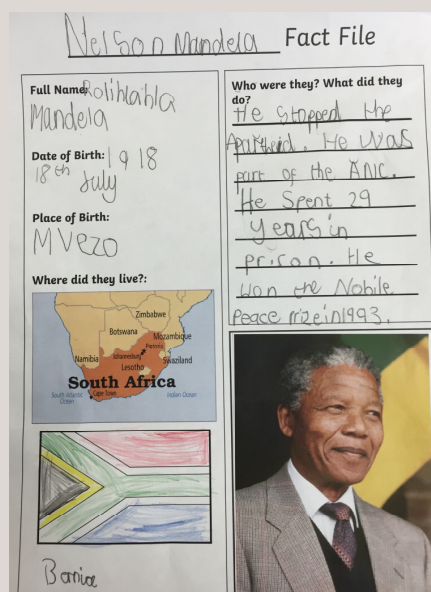 Nelson Mandela Fact File
Full Name: Rolihlahla
Mandela
Date of Birth: 1918
18th July
Place of Birth:
Mvezo
Where did they live?:
Zimbabwe
Botswana
Mozambique
Pretoria
Namibia
Johannesburg
Swaziland
Lesotho
South Africa
South Atlantic
Ocean
Cape Town
Indian Ocean
Bernice
Who were they? What did they
do?
He stopped the
Apartheid. He was
part of the ANC.
He Spent 29
years in
prison. He
won the Nobile
Peace Prize in 1993.